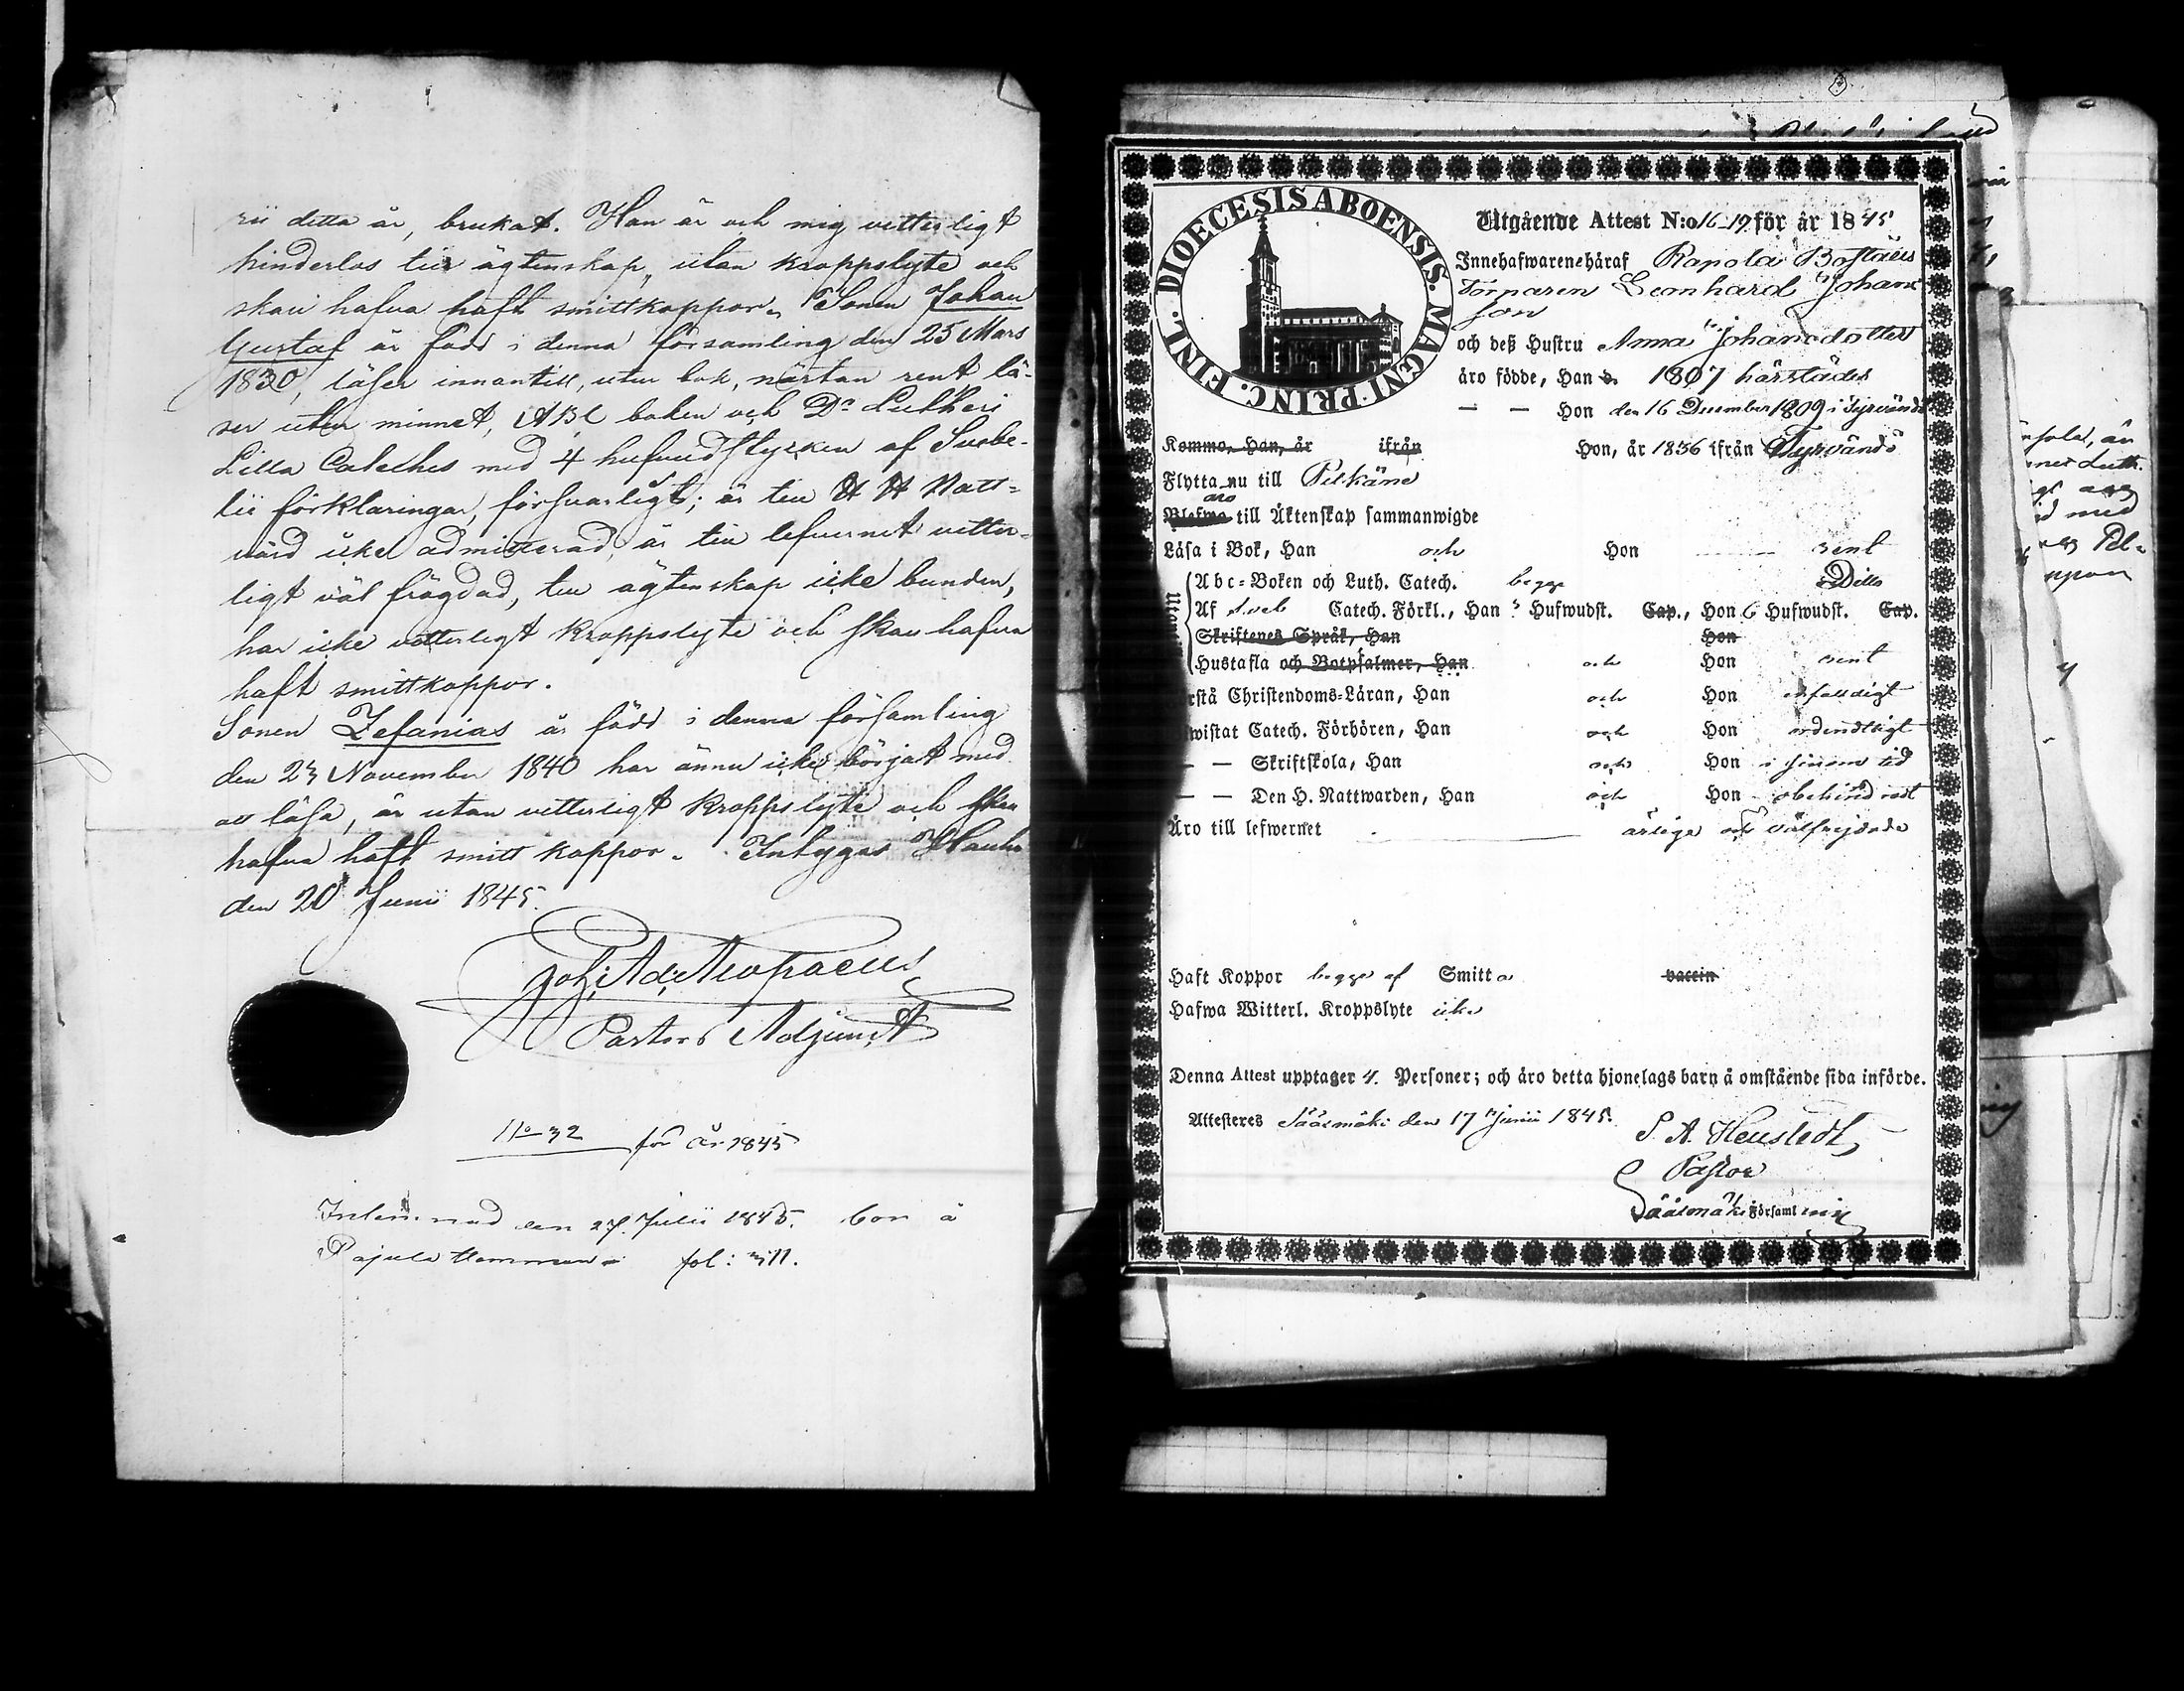 rii detta år, brukat. Han är och mig vetterligt
hinderlös till ägtenskap, utan kroppslyte och
skall hafva haft smittkoppor. Sonen Johan
Gustaf är född i denna församling den 25 Mars
1830, läser innantill, uti bok, nästan rent lä-
ser utan minnet, ABC boken och Dr Lutheri
Lilla Cateches med 4 hufvudstycken af Svebe-
lii förklaringar, försvarligt; är till H H Natt-
vard icke admitterad, är till lefvernet vetter-
ligt väl frägdad, till ägtenskap icke bunden,
har icke vetterligt kroppslyte och skall hafva
haft smittkoppor.
Sonen Zefanias är född i denna församling
den 23 November 1840 har ännu icke börjat med
att läsa, är utan vetterligt kroppslyte och skall
hafva haft smittkoppor. Intygas Hauho
den 20 Junii 1845.
Joh: Ad:
Pastors Adjunct
No 32 för år 1845
Inlemnad den 27 Julii 1845. bor å
Pajula Hemman fol: 311.
DIOECESIS ABOENSIS. MAGNI PRINC. FINL.
Utgående Attest N:o 16-19 för år 1845
Innehafwarene häraf Rapola Boställs
Torparen Leonhard Johans
son
och deß Hustru Anna Johansdotter
äro födde, Han d. 1807 härstädes
— — Hon den 16 December 1809 i Tyrvändö
Komme, Han, år ifrån Hon, år 1836 ifrån Tyrvändö
Flytta nu till Pelkäne
äro
Blefwo till Äktenskap sammanwigde
Läsa i Bok, Han och Hon rent
Abc-Boken och Luth. Catech. begge Ditto
Af Sveb Catech. Förkl., Han 5 Hufwudst. Cap., Hon 6 Hufwudst. Cap.
Skriftenes Språk, Han Hon
Hustafla och Botpsalmer, Han och Hon rent
rstå Christendoms-Läran, Han och Hon enfaldigt
wistat Catech. Förhören, Han och Hon ordentligt
— — Skriftskola, Han och Hon i sinom tid
— — Den H. Nattwarden, Han och Hon obehindradt
Äro till lefwernet ärlige och välfrejdade
Haft Koppor begge af Smitta vaccin
Hafwa Witterl. Kroppslyte icke
Denna Attest upptager 4. Personer; och äro detta hjonelags barn å omstående sida införde.
Attesteres Sääsmäki den 17 Junii 1845.
Pastor
Sääsmäki Församling